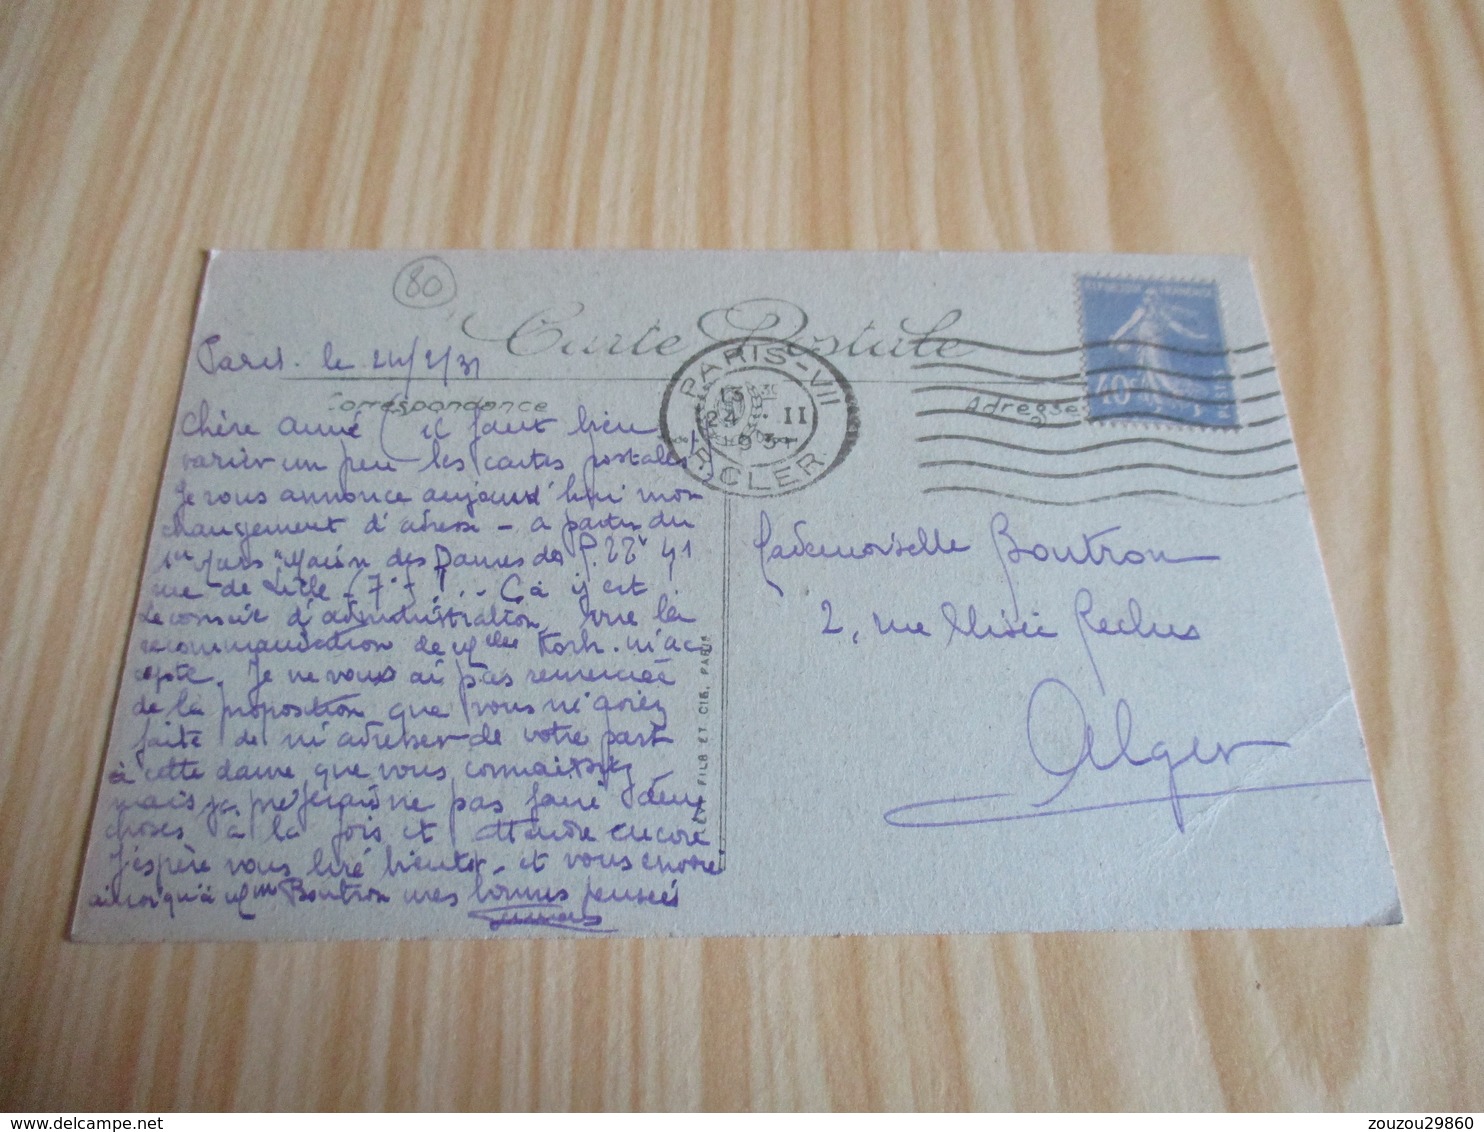 80
Carte Postale
Paris. le 24/2/31
Correspondance
Adresse
PARIS-VII
13
24 · II
1931
R. CLER
REPUBLIQUE FRANCAISE
40c
Chère amie (il faut bien
varier un peu les cartes postales)
Je vous annonce aujourd'hui mon
changement d'adresse - a partir du
1er Mars "Maison des Dames des P.TT" 41
rue de Lille (7e) ! .. Ca y est
Le conseil d'administration, vue la
recommandation de Melle Korh. m'ac
cepte. Je ne vous ai pas remercié
de la proposition que vous m'aviez
faite de m'adresser de votre part
à cette dame que vous connaissez
mais je préférais ne pas faire deux
choses à la fois et attendre encore
J'espère vous lire bientôt - et vous envoie
ainsi qu'à Mme Boutron mes bonnes pensées
Mademoiselle Boutron
2, rue Elisée Reclus
Alger
FILS ET CIE, PARIS
zouzou29860